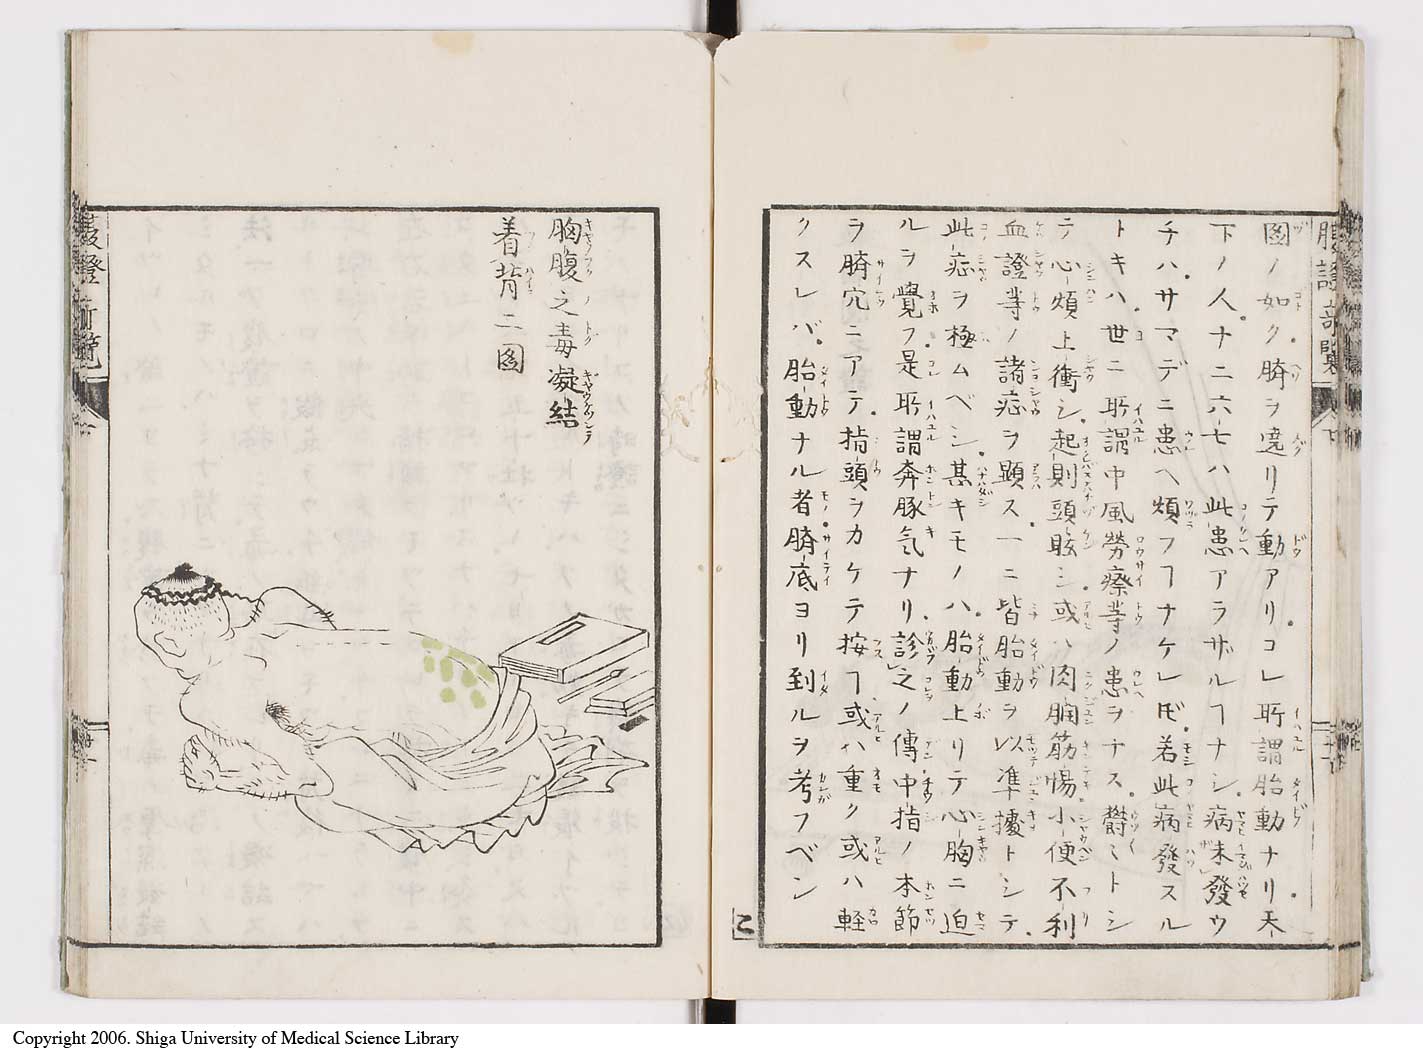 図ノ如ク臍ヲ遶リテ動アリコレ所謂胎動ナリ天
下ノ人。十ニ六七ハ此患アラザルヿナシ。病未發ウ
チハ。サマデニ患ヘ煩フヿナケレ𪜈。若此病發スル
トキハ世ニ所謂中風勞瘵等ノ患ヲナス。欝〻トシ
テ心煩上衝シ。起則頭眩シ或ハ肉瞤筋惕小便不利
血證等ノ諸症ヲ顕ス。一ニ皆胎動ヲ以準擾トシテ。
此症ヲ極ムベシ。甚キモノハ。胎動上リテ心胸ニ迫
ルヲ覺フ是所謂奔豚気ナリ。診之ノ傳中指ノ本節
ヲ臍穴ニアテ。指頭ヲカケテ按ヿ。或ハ重ク或ハ軽
クスレバ。胎動ナル者臍底ヨリ到ルヲ考フベン
胸腹之毒凝結
着背二図
Copyright 2006. Shiga University of Medical Science Library